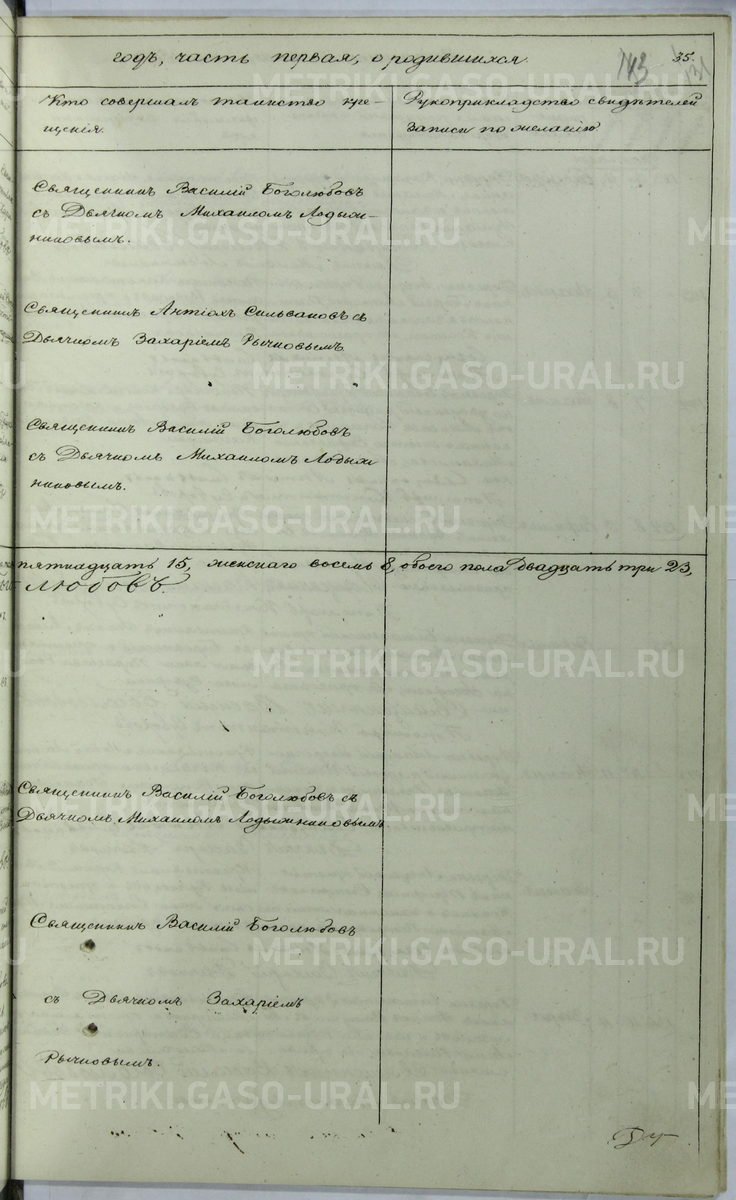 годъ, часть первая, о родившихся.
143
35.
131
Кто совершалъ таинство кре-
щенія.
Рукоприкладство свидѣтелей
записи по желанію.
Священникъ Василій Боголюбовъ
съ Дьячкомъ Михаиломъ Лодыж-
никовымъ.
Священникъ Антіохъ Сильвановъ съ
Дьячкомъ Захаріемъ Рычковымъ.
Священникъ Василій Боголюбовъ
съ Дьячкомъ Михаиломъ Лодыж
никовымъ.
пятнадцать 15, женскаго восемь 8, обоего пола двадцать три 23,
любовъ.
Священникъ Василій Боголюбовъ съ
Дьячкомъ Михаиломъ Лодыжниковымъ
Священникъ Василій Боголюбовъ
съ Дьячкомъ Захаріемъ
Рычковымъ.
METRIKI.GASO-URAL.RU